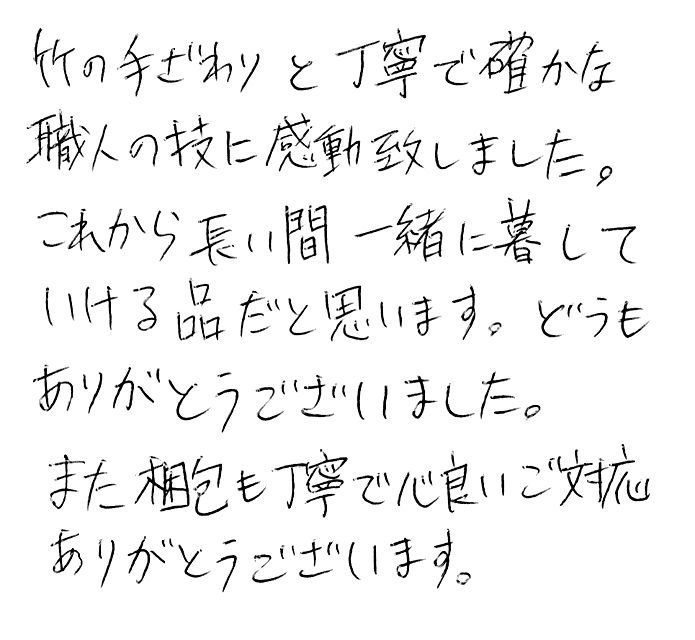 竹の手ざわりと丁寧で確かな
職人の技に感動致しました。
これから長い間一緒に暮して
いける品だと思います。どうも
ありがとうございました。
また梱包も丁寧で心良いご対応
ありがとうございます。